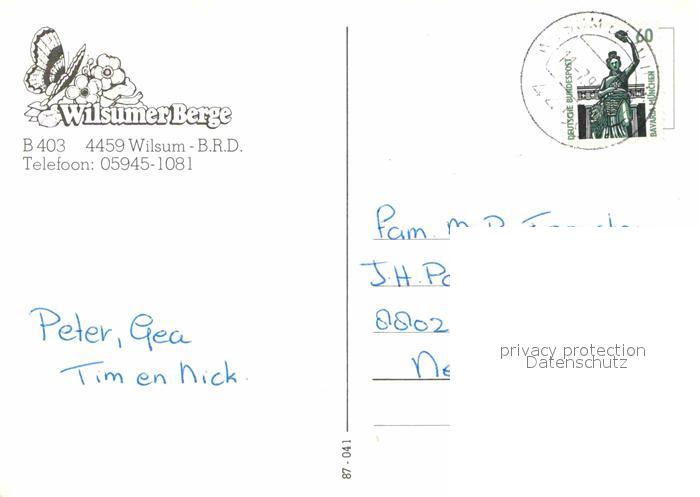 Wilsumer Berge
B 403 4459 Wilsum - B.R.D.
Telefoon: 05945-1081
60
DEUTSCHE BUNDESPOST
BAVARIA MÜNCHEN
Fam. M.
J.H. Po
8802
Ne
privacy protection
Datenschutz
Peter, Gea
Tim en Nick.
87 - 041